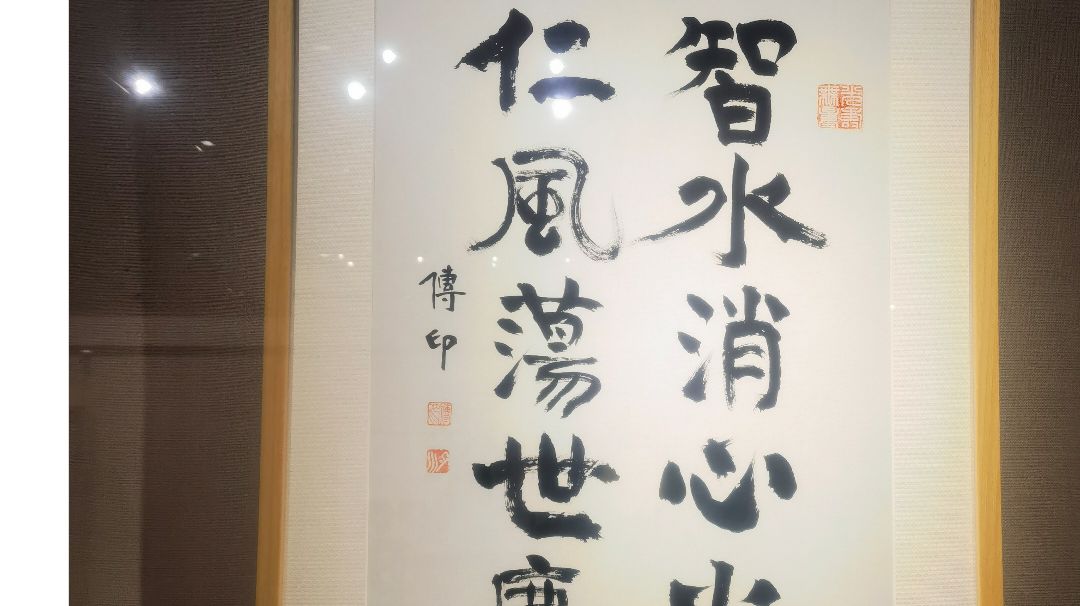 智水消心
仁風蕩世
傳印